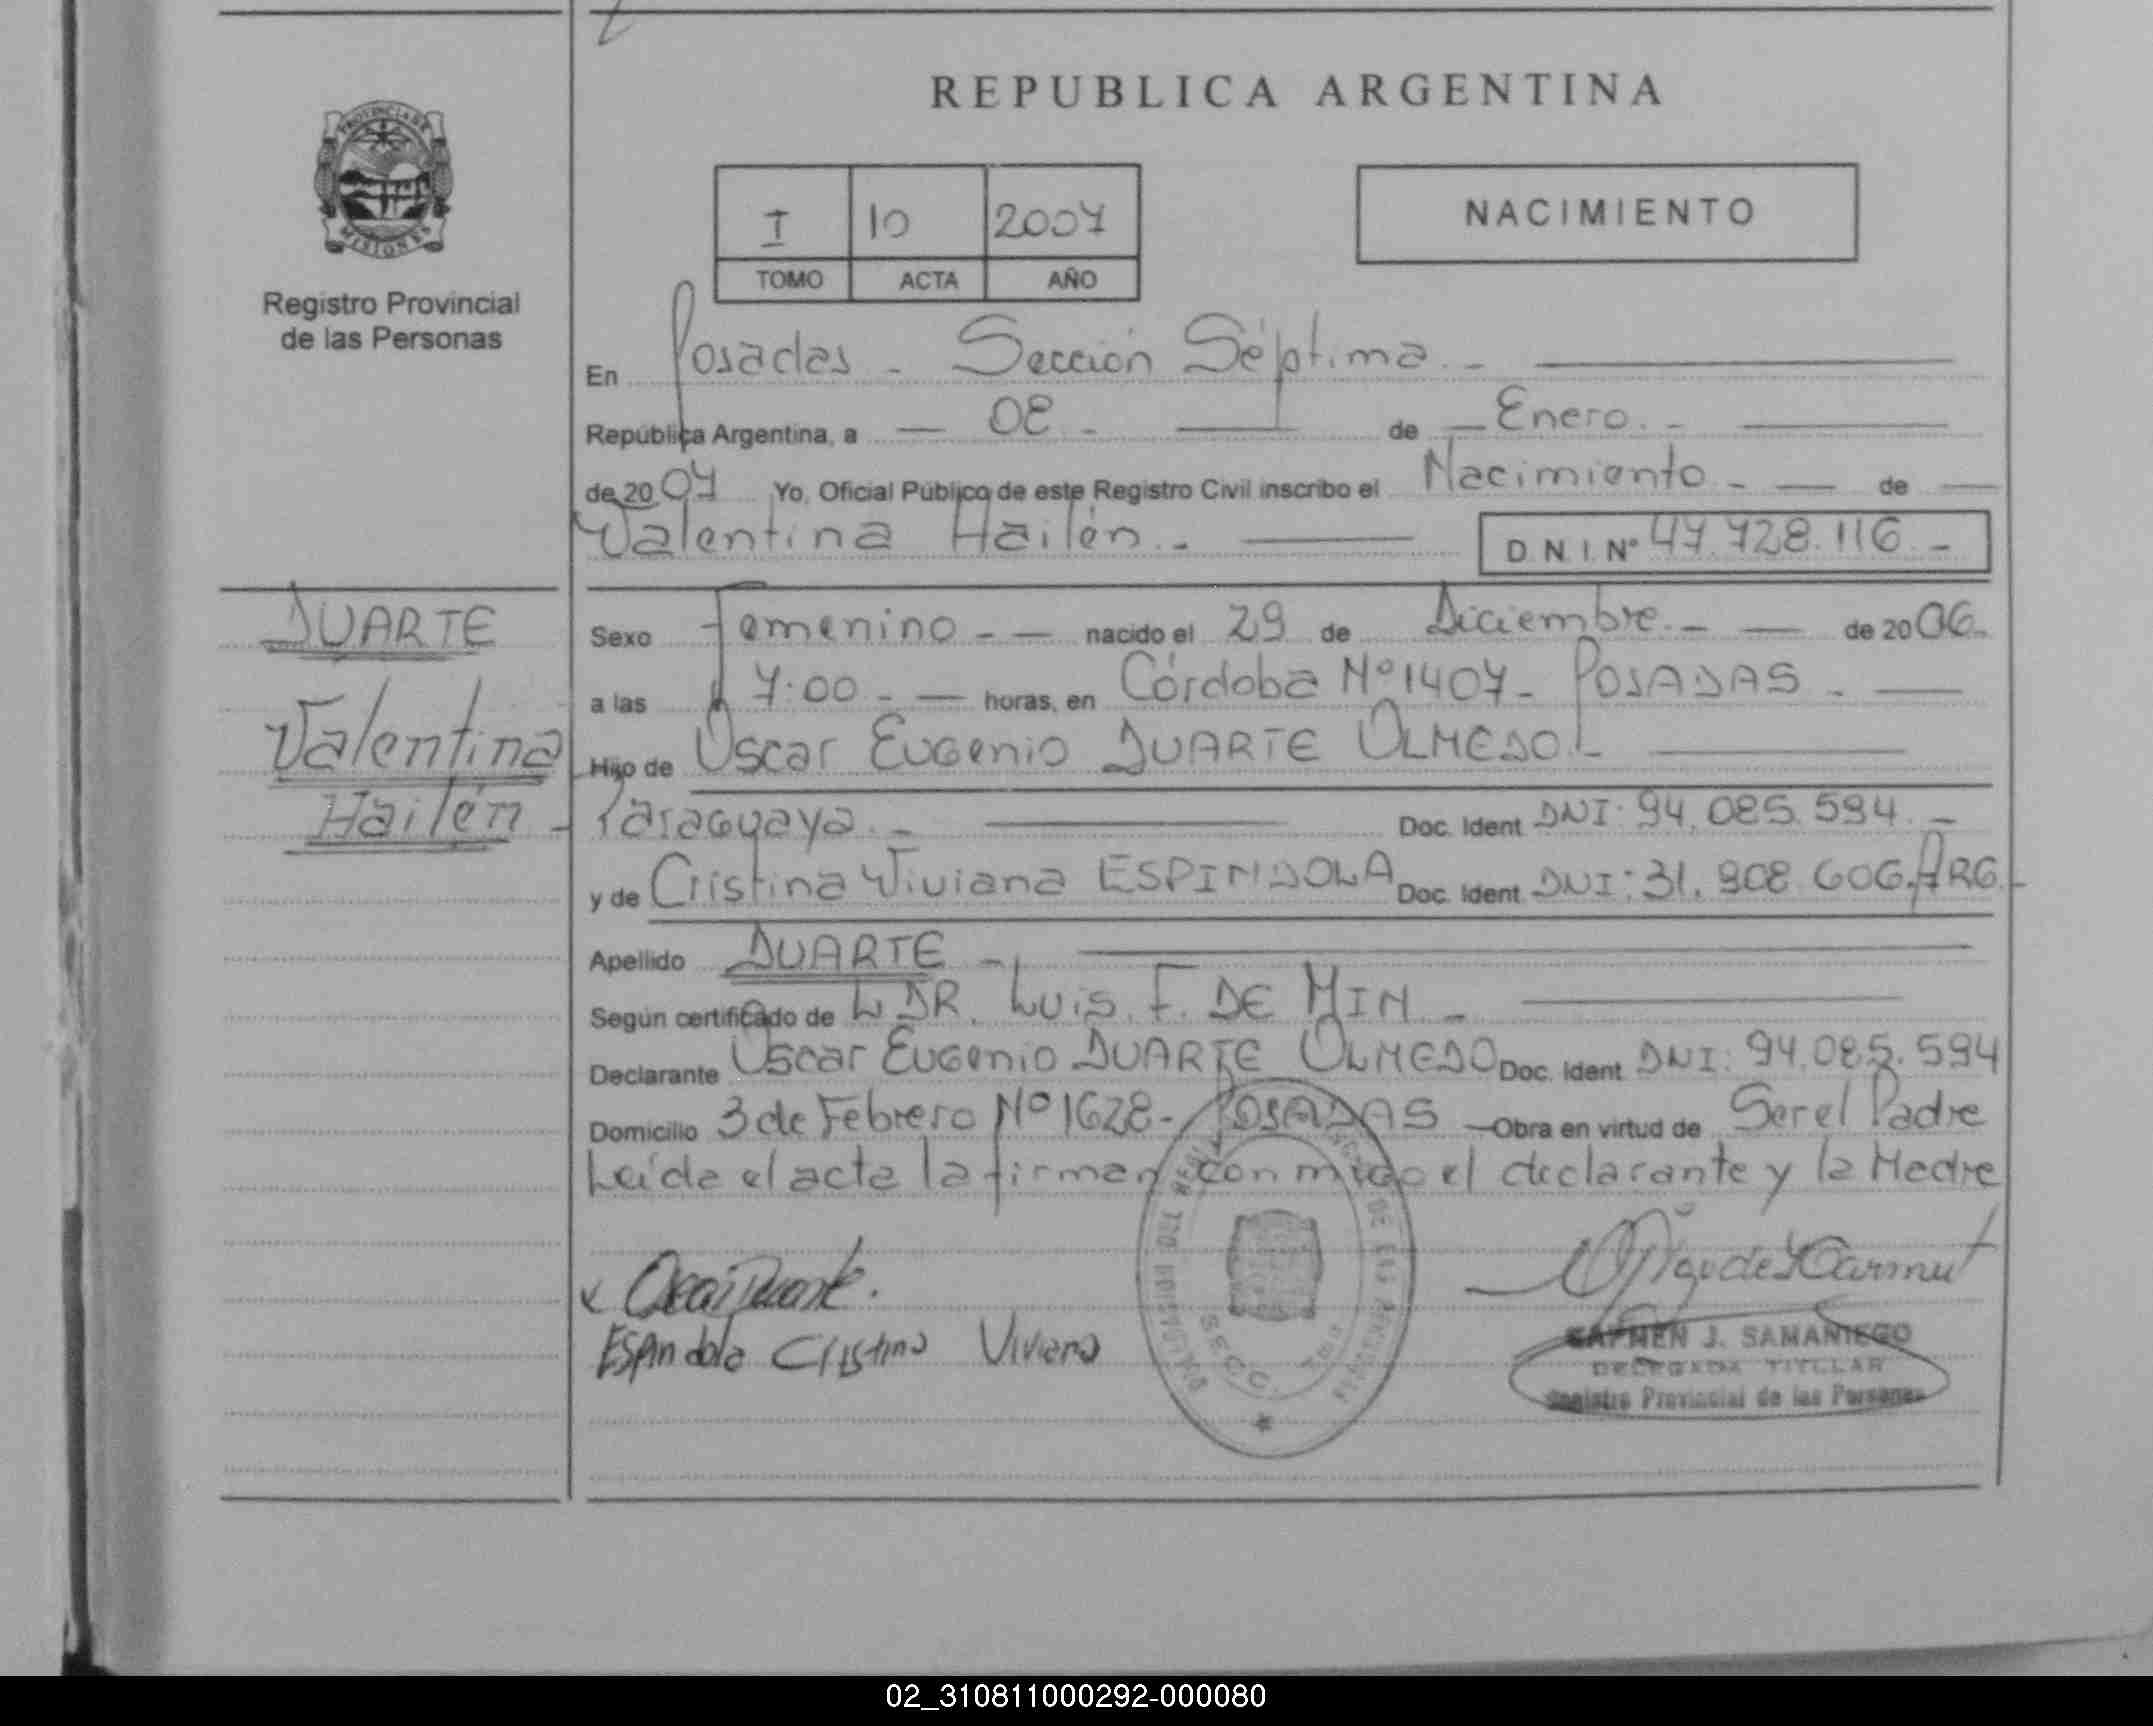 REPUBLICA ARGENTINA
PROVINCIA DE
MISIONES
Registro Provincial
de las Personas
I 10 2007
TOMO ACTA AÑO
NACIMIENTO
En Posadas - Sección Séptima. -
República Argentina, a — 08 - — de — Enero. - —
de 2007 Yo, Oficial Público de este Registro Civil inscribo el Nacimiento - — de —
Valentina Hailén. - — D.N.I. Nº 47.728.116 -
DUARTE
Valentina
Hailén -
Sexo Femenino - — nacido el 29 de Diciembre. - — de 2006.
a las 7:00 - — horas, en Córdoba Nº 1407 - POSADAS - —
Hijo de Oscar Eugenio DUARTE OLMEDO. -
Paraguaya. - — Doc. Ident. DNI: 94.085.594. -
y de Cristina Viviana ESPINDOLA Doc. Ident. DNI: 31.908.606. ARG. -
Apellido DUARTE -
Según certificado de DR. Luis. F. DE MIN -
Declarante Oscar Eugenio DUARTE OLMEDO Doc. Ident. DNI: 94.085.594
Domicilio 3 de Febrero Nº 1628 - POSADAS — Obra en virtud de Ser el Padre
Leída el acta la firman con migo el declarante y la Madre
Oscar Duarte.
Espindola Cristina Viviana
CARMEN J. SAMANIEGO
DELEGADA TITULAR
Registro Provincial de las Personas
SECC. 7ma
02_310811000292-000080